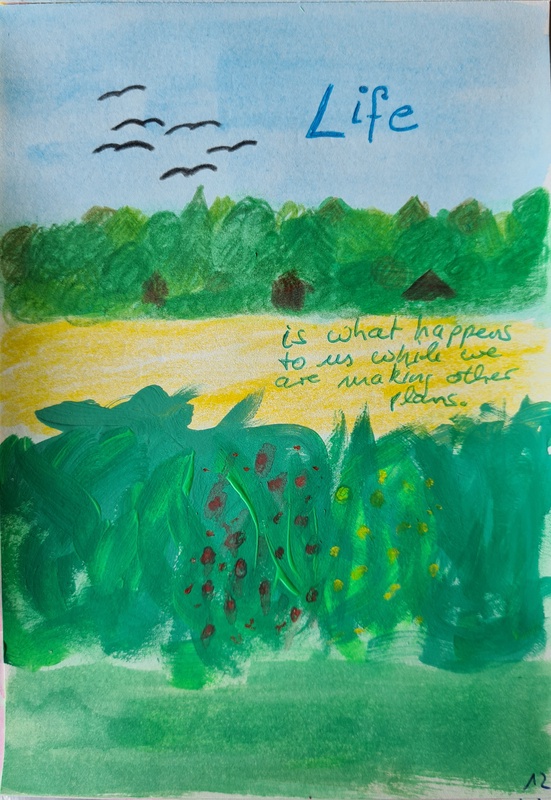 Life
is what happens
to us while we
are making other
plans.
12